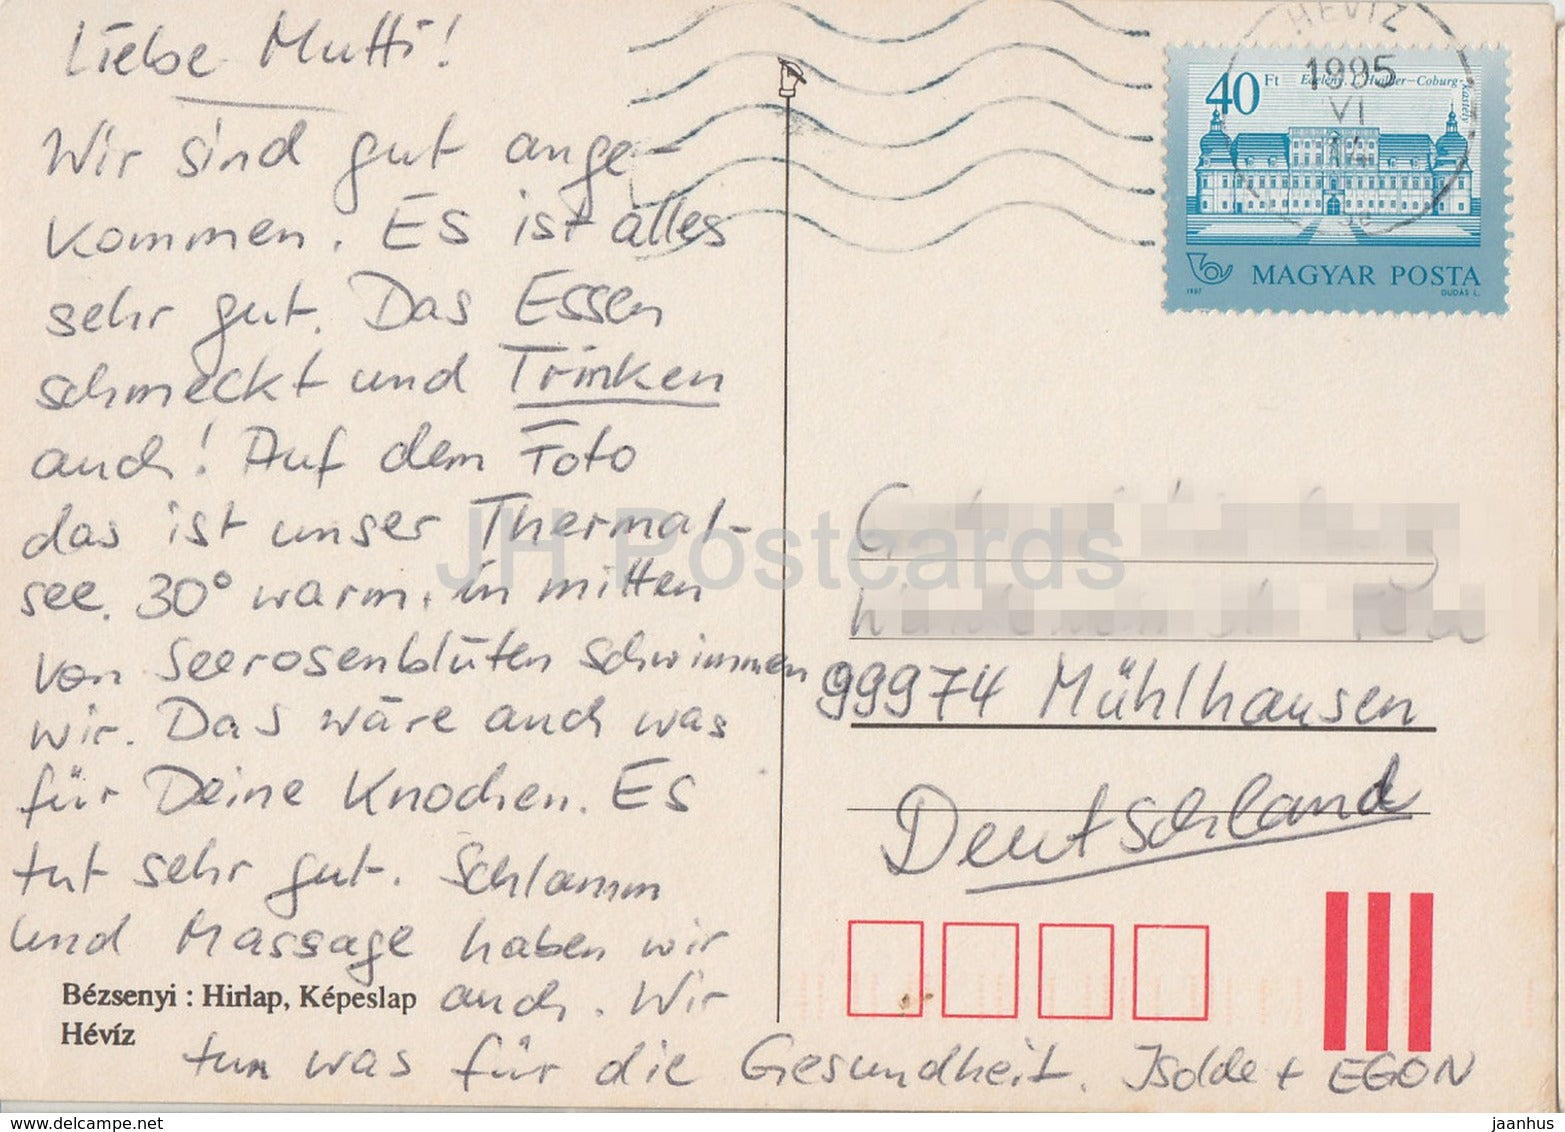 Liebe Mutti!
Wir sind gut ange-
kommen. Es ist alles
sehr gut. Das Essen
schmeckt und Trinken
auch! Auf dem Foto
das ist unser Thermal-
see. 30° warm. in mitten
von Seerosenblüten schwimmen
wir. Das wäre auch was
für Deine Knochen. Es
tut sehr gut. Schlamm
und Massage haben wir
auch. Wir
tun was für die Gesundheit. Isolde + EGON
Bézsenyi : Hirlap, Képeslap
Hévíz
HÉVÍZ
1995
VI
14
40 Ft
MAGYAR POSTA
1987
DUDÁS L.
99974 Mühlhausen
Deutschland
JH Postcards
www.delcampe.net
jaanhus